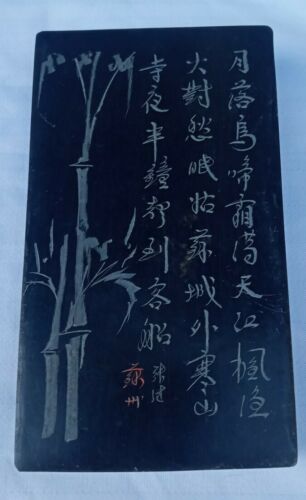 月落烏啼霜满天江枫渔
火對愁眠姑苏城外寒山
寺夜半鐘聲到客船
张继
蘇州